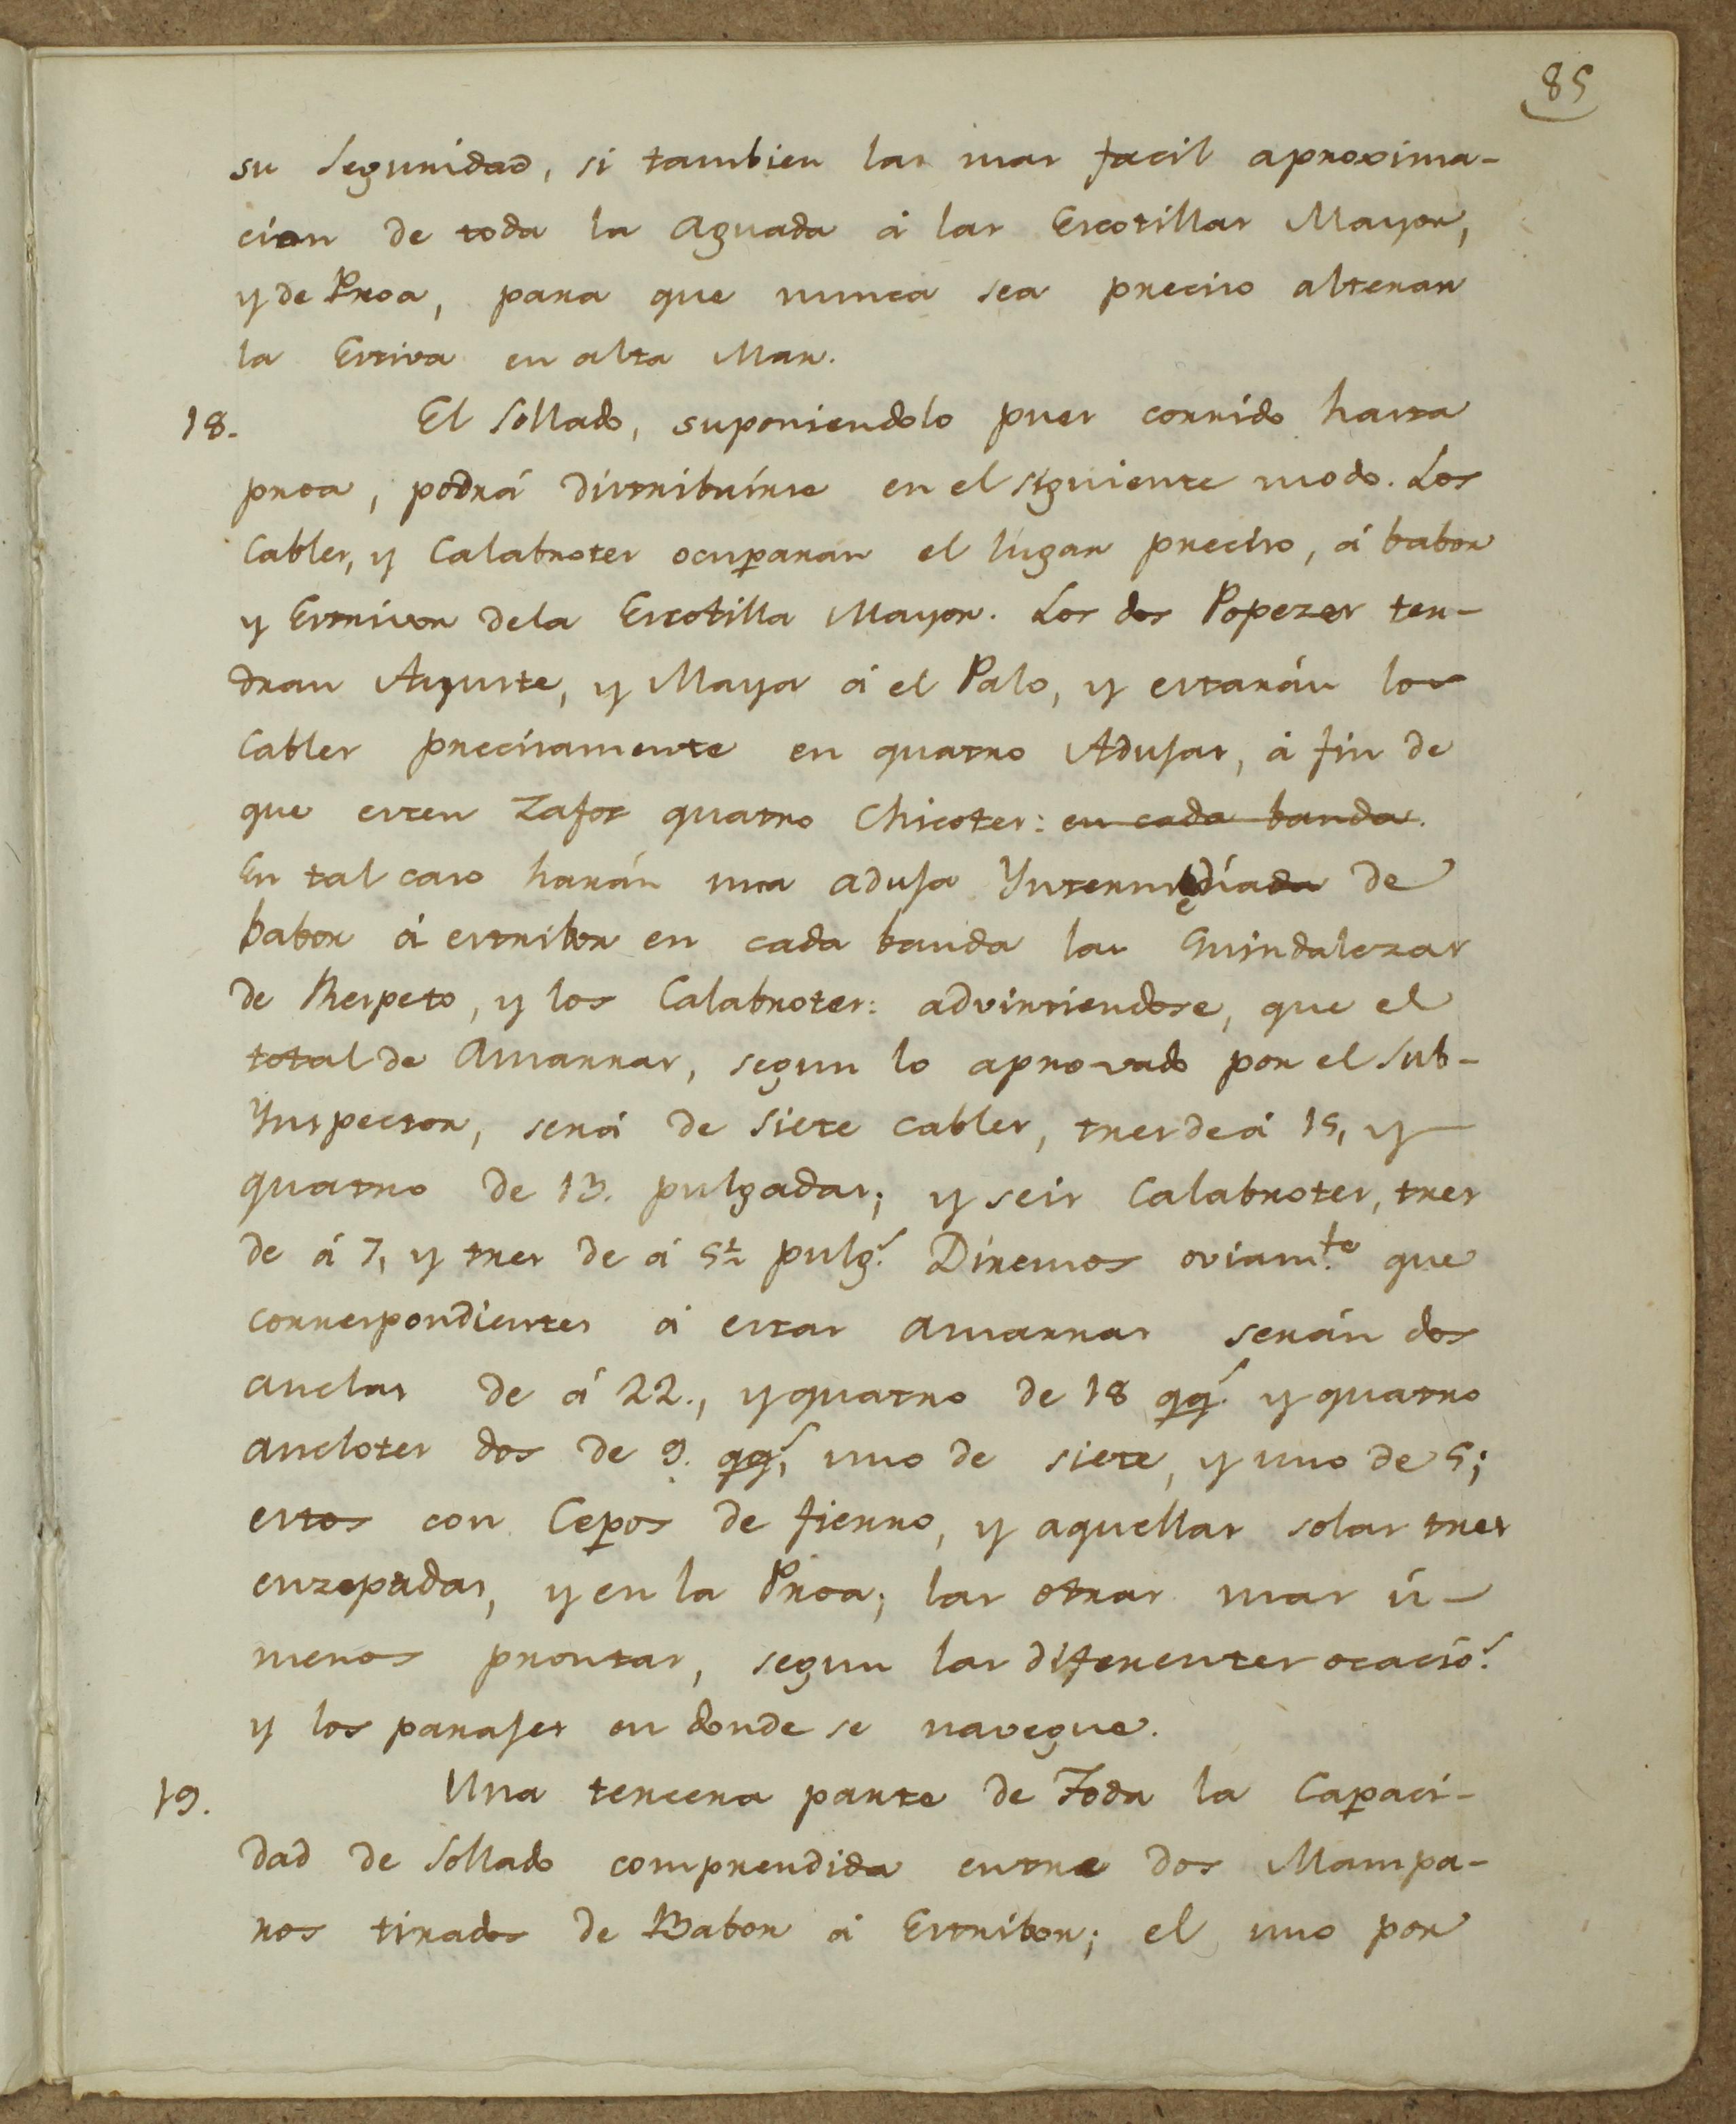 85
su Seguridad, si tambien las mas facil aproxima-
cion de toda la Aguada á las Escotillas Mayor,
y de Proa, para que nunca sea preciso alterar
la Estiva en alta Mar.
18. El Sollado, suponiendolo pues corrido hasta
proa, podrá distribuírse en el siguiente modo. Los
Cables, y Calabrotes ocuparan el lugar preciso, á babor
y Estrivor dela Escotilla Mayor. Los dos Popezes ten-
dran Ayuste, y Maya á el Palo, y estarán los
Cables precisamente en quatro Adujas, á fin de
que esten Zafos quatro Chicotes: en cada banda.
En tal caso harán una aduja Yntermediada de
babor á estribor en cada banda las Guindalezas
de Respeto, y los Calabrotes: advirtiendose, que el
total de Amarras, segun lo aprovado por el Sub-
Ynspector, será de Siete cables, tres de á 15, y
quatro de 13. pulgadas; y seis Calabrotes, tres
de á 7, y tres de á 5½ pulgs. Diremos oviamte. que
correspondientes á estas amarras serán dos
anclas de á 22., y quatro de 18 qqs. y quatro
anclotes dos de 9. qqs, uno de siete, y uno de 5;
estos con Cepos de fierro, y aquellas solas tres
enzepadas, y en la Proa; las otras mas ú-
menos prontas, segun las diferentes ocaciós.
y los parajes en donde se navegue.
19. Una tercera parte de Toda la Capaci-
dad de Sollado comprendida entre dos Mampa-
ros tirados de Babor á Estribor; el uno por